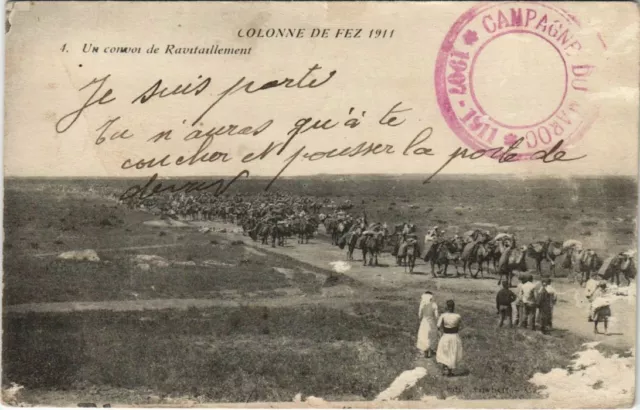 COLONNE DE FEZ 1911
4. Un convoi de Ravitaillement
CAMPAGNE DU MAROC
1907-1911
Je suis parte
Tu n'auras qu'à te
coucher et pousser la porte de